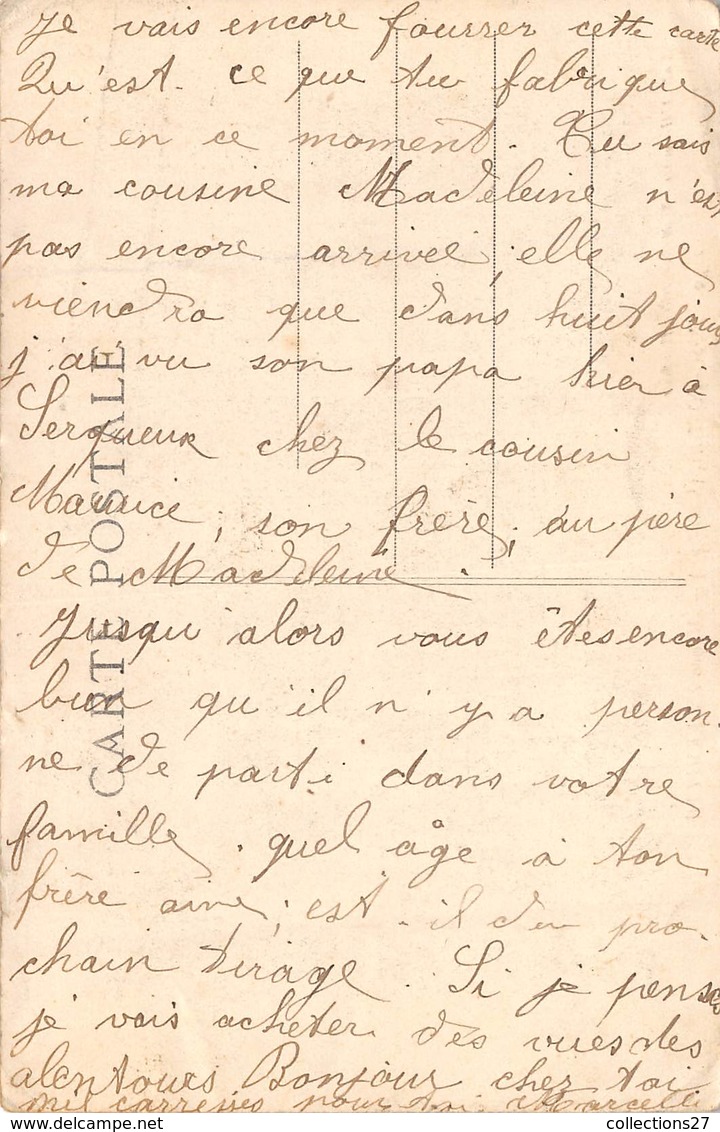 Je vais encore fourrer cette carte
Qu'est-ce que tu fabrique
toi en ce moment. Tu sais
ma cousine Madeleine n'est
pas encore arrivée, elle ne
viendra que dans huit jours
j'ai vu son papa hier à
Serqueux chez le cousin
Maurice, son frère, au père
de Madeleine.
Jusqu'alors vous êtes encore
bien qu'il n'y a person-
ne de parti dans votre
famille. quel âge à ton
frère ainé, est-il du pro-
chain tirage. Si je pense
je vais acheter des vues des
alentours Bonjour chez toi
mil carresses pour toi Marcelle
CARTE POSTALE
collections27